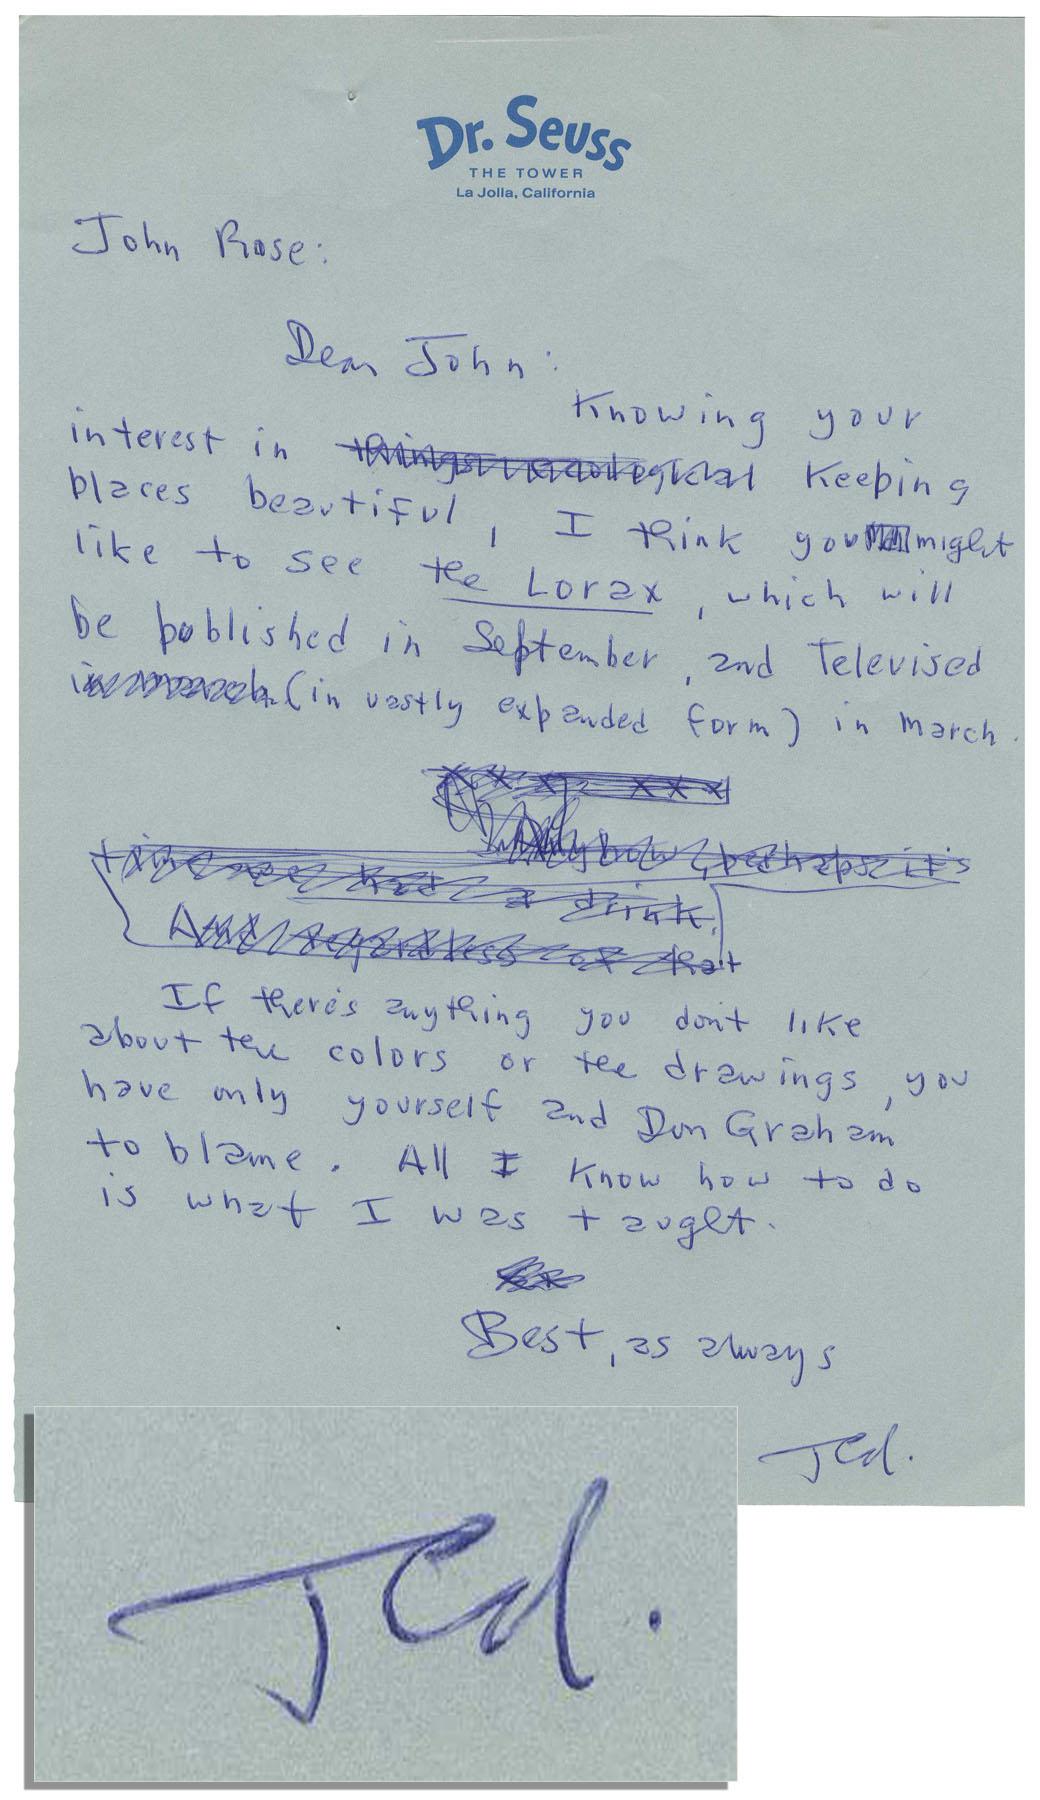 Dr. Seuss
THE TOWER
La Jolla, California
John Rose:
Dear John:
Knowing your
interest in things ecological keeping
places beautiful, I think you might
like to see the Lorax, which will
be published in September, and Televised
in March (in vastly expanded form) in March.
x x x x x x
Anyhow, perhaps it's
time we had a drink.
And regardless of that
If there's anything you don't like
about the colors or the drawings, you
have only yourself and Don Graham
to blame. All I know how to do
is what I was taught.
Best, as always
Ted.
Ted.